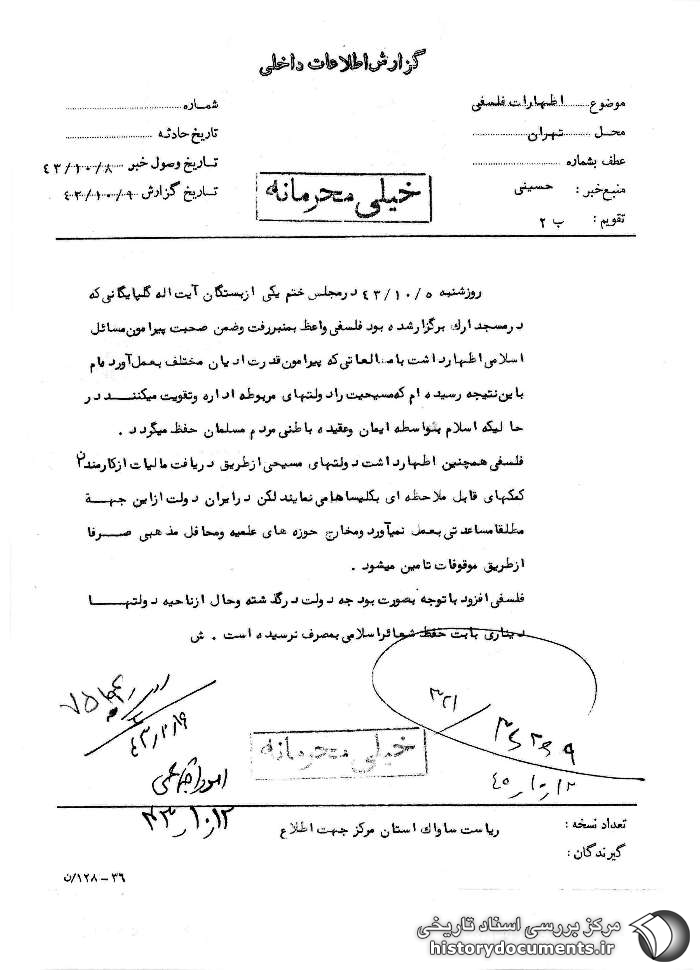 گزارش اطلاعات داخلی
موضوع اظهارات فلسفی
شماره
محل تهران
تاریخ حادثه
عطف بشماره
تاریخ وصول خبر ۴۳/۱۰/۸
منبع خبر : حسینی
تاریخ گزارش ۴۳/۱۰/۹
تقویم : ب ۲
خیلی محرمانه
روزشنبه ۴۳/۱۰/۵ درمجلس ختم یکی ازبستگان آیت اله گلپایگانی که
درمسجد ارک برگزارشده بود فلسفی واعظ بمنبررفت وضمن صحبت پیرامون مسائل
اسلامی اظهارداشت بامطالعاتی که پیرامون قدرت ادیان مختلف بعمل آورده ام
باین نتیجه رسیده ام که مسیحیت را دولتهای مربوطه اداره وتقویت میکننـد در
حالیکه اسلام بواسطه ایمان وعقیده باطنی مردم مسلمان حفظ میگردد .
فلسفی همچنین اظهارداشت دولتهای مسیحی ازطریق دریافت مالیات ازکارمندان
کمکهای قابل ملاحظه ای بکلیساهامی نمایند لکن درایران دولت ازاین جهـة
مطلقا مساعدتی بعمل نمیآورد ومخارج حوزه های علمیه ومحافل مذهبی صـرفا
ازطریق موقوفات تامین میشود .
فلسفی افزود باتوجه بصورت بودجه دولت درگذشته وحال ازناحیه دولتهـا
دیناری بابت حفظ شعائراسلامی بمصرف نرسیده است . ش
۳۲۱
خیلی محرمانه
امور اجتماعی
۴۳٫۱۰٫۱۲
تعداد نسخه :
ریاست ساواک استان مرکز جهت اطلاع
گیرندگان :
۳۶ – ۱۲۸/ن
مرکز بررسی اسناد تاریخی
historydocuments.ir